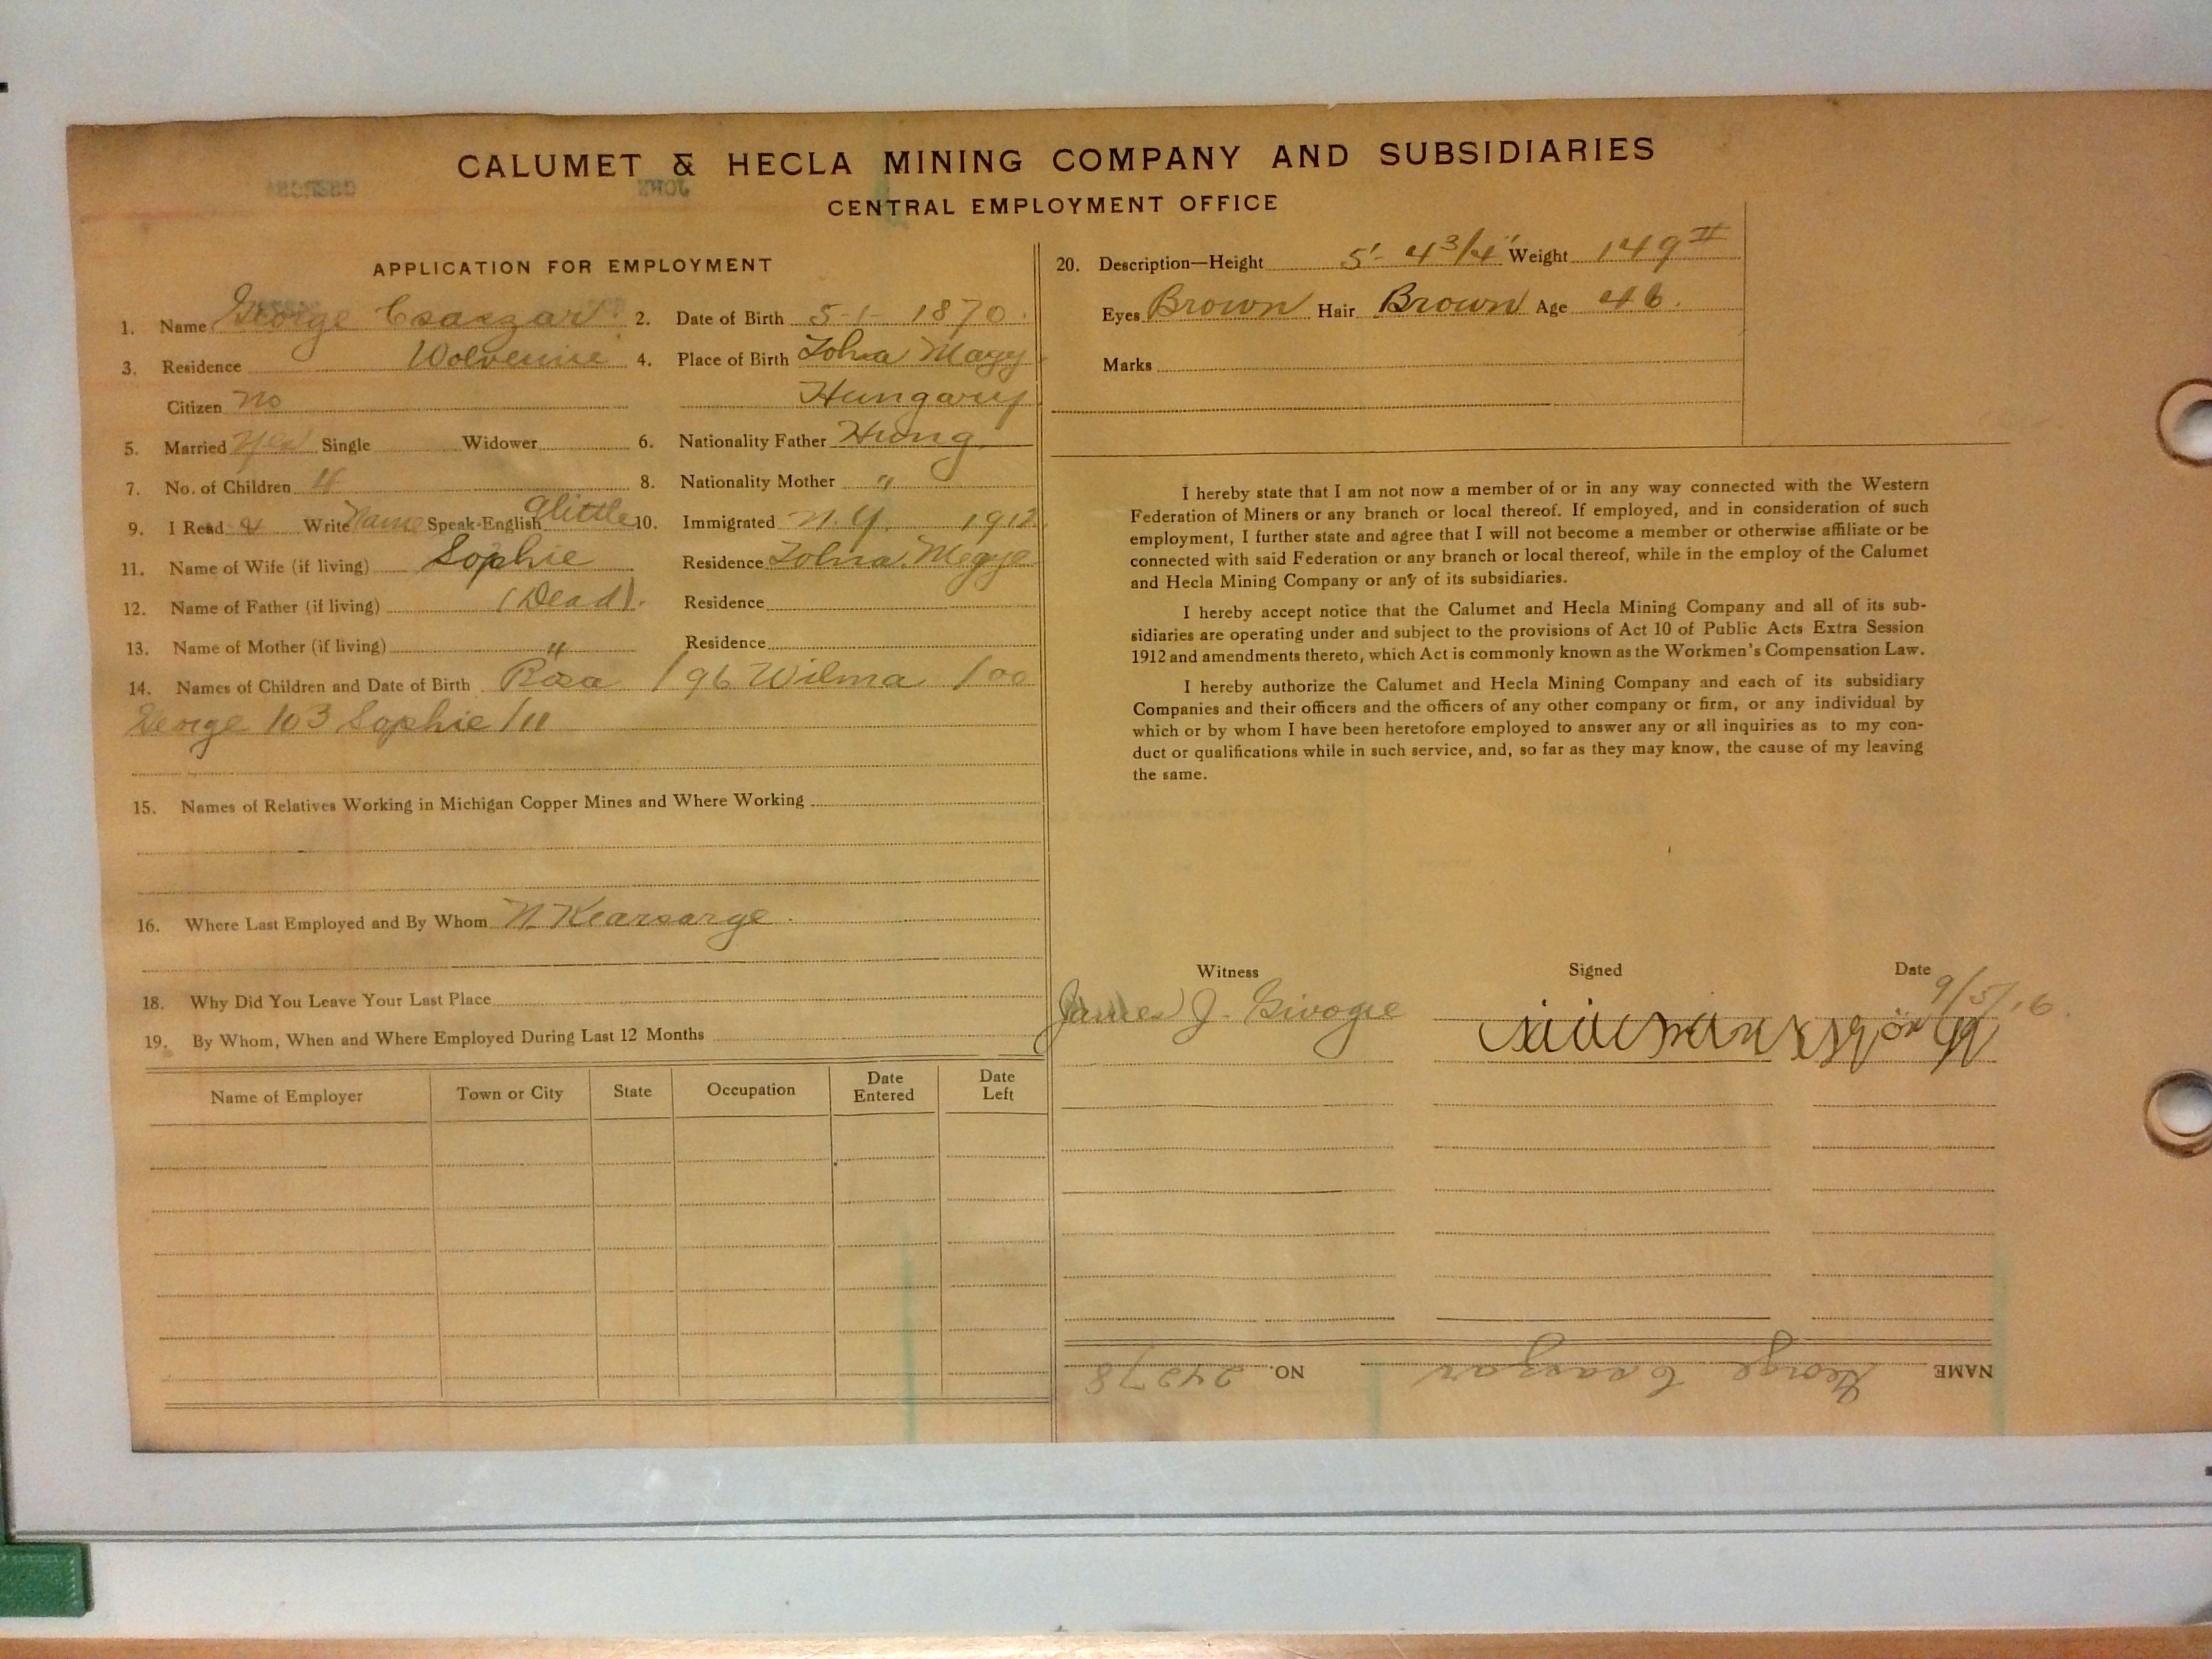 CALUMET & HECLA MINING COMPANY AND SUBSIDIARIES
JOHN
CENTRAL EMPLOYMENT OFFICE
APPLICATION FOR EMPLOYMENT
1. Name George Csaszar 2. Date of Birth 5-1-1870.
3. Residence Wolverine 4. Place of Birth Tolna Magy
Citizen No Hungary
5. Married Yes Single Widower 6. Nationality Father Hung
7. No. of Children 4 8. Nationality Mother "
9. I Read & Write Name Speak-English Alittle 10. Immigrated N.Y. 1912
11. Name of Wife (if living) Sophie Residence Tolna Megye
12. Name of Father (if living) (Dead). Residence
13. Name of Mother (if living) " Residence
14. Names of Children and Date of Birth Rosa /96 Wilma /00
George /03 Sophie /11
15. Names of Relatives Working in Michigan Copper Mines and Where Working
16. Where Last Employed and By Whom N. Kearsarge.
18. Why Did You Leave Your Last Place
19. By Whom, When and Where Employed During Last 12 Months
Name of Employer Town or City State Occupation Date Entered Date Left
20. Description—Height 5'-4 3/4" Weight 149 #
Eyes Brown Hair Brown Age 46.
Marks
I hereby state that I am not now a member of or in any way connected with the Western
Federation of Miners or any branch or local thereof. If employed, and in consideration of such
employment, I further state and agree that I will not become a member or otherwise affiliate or be
connected with said Federation or any branch or local thereof, while in the employ of the Calumet
and Hecla Mining Company or any of its subsidiaries.
I hereby accept notice that the Calumet and Hecla Mining Company and all of its sub-
sidiaries are operating under and subject to the provisions of Act 10 of Public Acts Extra Session
1912 and amendments thereto, which Act is commonly known as the Workmen's Compensation Law.
I hereby authorize the Calumet and Hecla Mining Company and each of its subsidiary
Companies and their officers and the officers of any other company or firm, or any individual by
which or by whom I have been heretofore employed to answer any or all inquiries as to my con-
duct or qualifications while in such service, and, so far as they may know, the cause of my leaving
the same.
Witness Signed Date
James J. 9/5/16
NAME George Csaszar NO. 24278